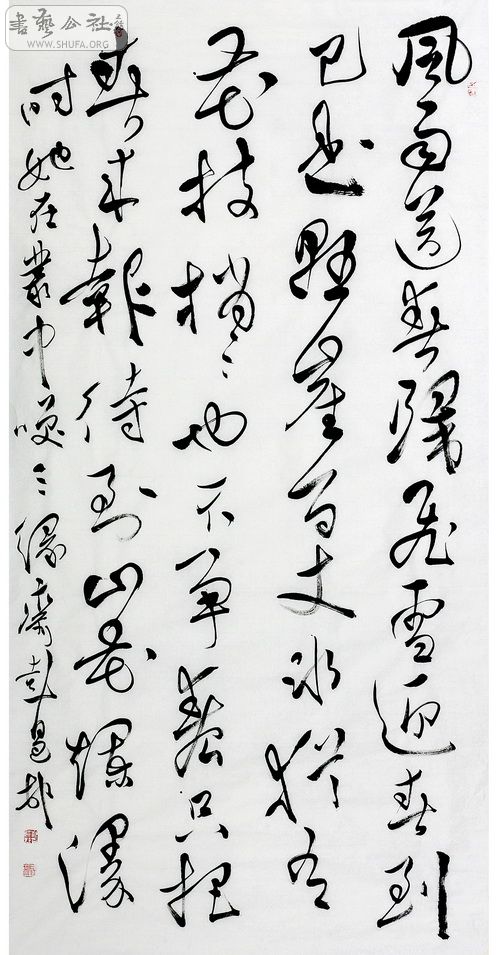 書藝公社
WWW.SHUFA.ORG
風雨送春歸飛雪迎春到
已是懸崖百丈冰猶有
花枝梢〻也不爭春只把
春來報待到山花爛漫
時她在叢中咲〻緣齋